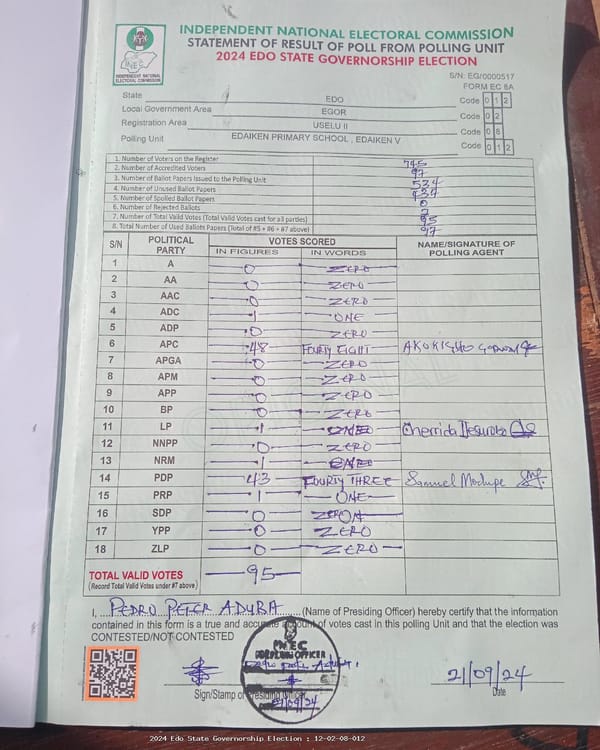 INDEPENDENT NATIONAL ELECTORAL COMMISSION
STATEMENT OF RESULT OF POLL FROM POLLING UNIT
2024 EDO STATE GOVERNORSHIP ELECTION
INEC
INDEPENDENT NATIONAL ELECTORAL COMMISSION
S/N: EG/0000517
FORM EC 8A
State EDO Code 0 1 2
Local Government Area EGOR Code 0 2
Registration Area USELU II Code 0 8
Polling Unit EDAIKEN PRIMARY SCHOOL , EDAIKEN V Code 0 1 2
1. Number of Voters on the Register 745
2. Number of Accredited Voters 97
3. Number of Ballot Papers Issued to the Polling Unit 534
4. Number of Unused Ballot Papers 437
5. Number of Spoiled Ballot Papers 0
6. Number of Rejected Ballots 2
7. Number of Total Valid Votes (Total Valid Votes cast for all parties) 95
8. Total Number of Used Ballots Papers (Total of #5 + #6 + #7 above) 97
S/N POLITICAL PARTY VOTES SCORED NAME/SIGNATURE OF POLLING AGENT
IN FIGURES IN WORDS
1 A 0 ZERO
2 AA 0 ZERO
3 AAC 0 ZERO
4 ADC 1 ONE
5 ADP 0 ZERO
6 APC 48 FOURTY EIGHT
7 APGA 0 ZERO
8 APM 0 ZERO
9 APP 0 ZERO
10 BP 0 ZERO
11 LP 1 ONE
12 NNPP 0 ZERO
13 NRM 1 ONE
14 PDP 43 FOURTY THREE Samuel Modupe
15 PRP 1 ONE
16 SDP 0
17 YPP 0 ZERO
18 ZLP 0 ZERO
TOTAL VALID VOTES 95
(Record Total Valid Votes under #7 above)
I, PEDRO PETER ADUBA (Name of Presiding Officer) hereby certify that the information
contained in this form is a true and accurate account of votes cast in this polling Unit and that the election was
CONTESTED/NOT CONTESTED
INEC
PRESIDING OFFICER
21/09/24
Sign/Stamp of Presiding Officer
21/09/24
Date
2024 Edo State Governorship Election : 12-02-08-012